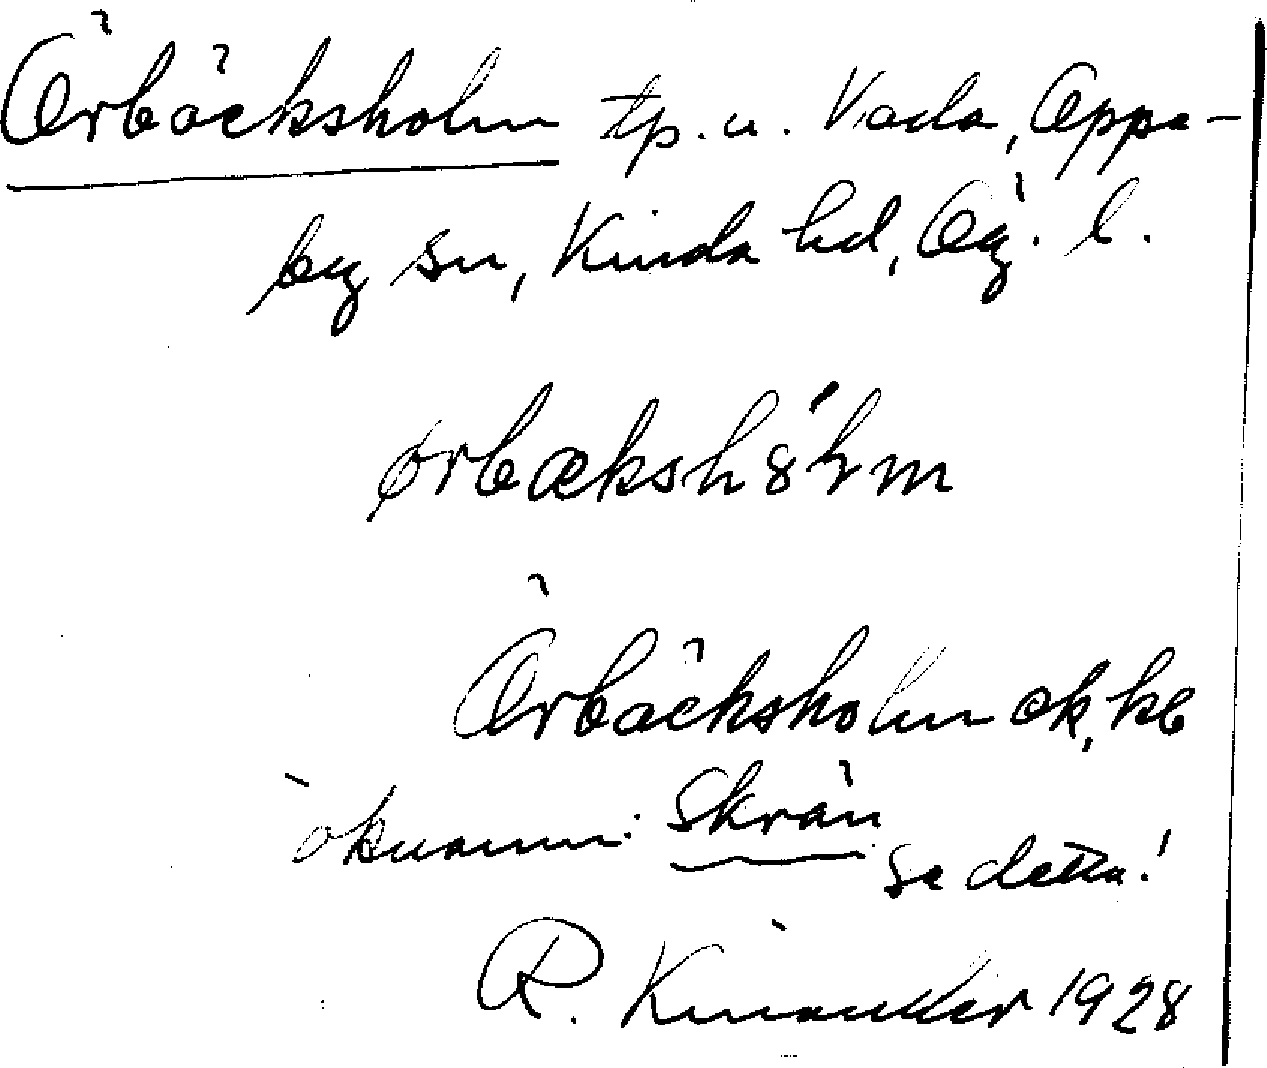 Örbäcksholm tp. u. Vada, Oppe-
by sn, Kinda hd, Ög. l.
ørbækshȣ́lm
Örbäcksholm ek. kb
öknamn: Skrän
se detta!
R. Kinander 1928